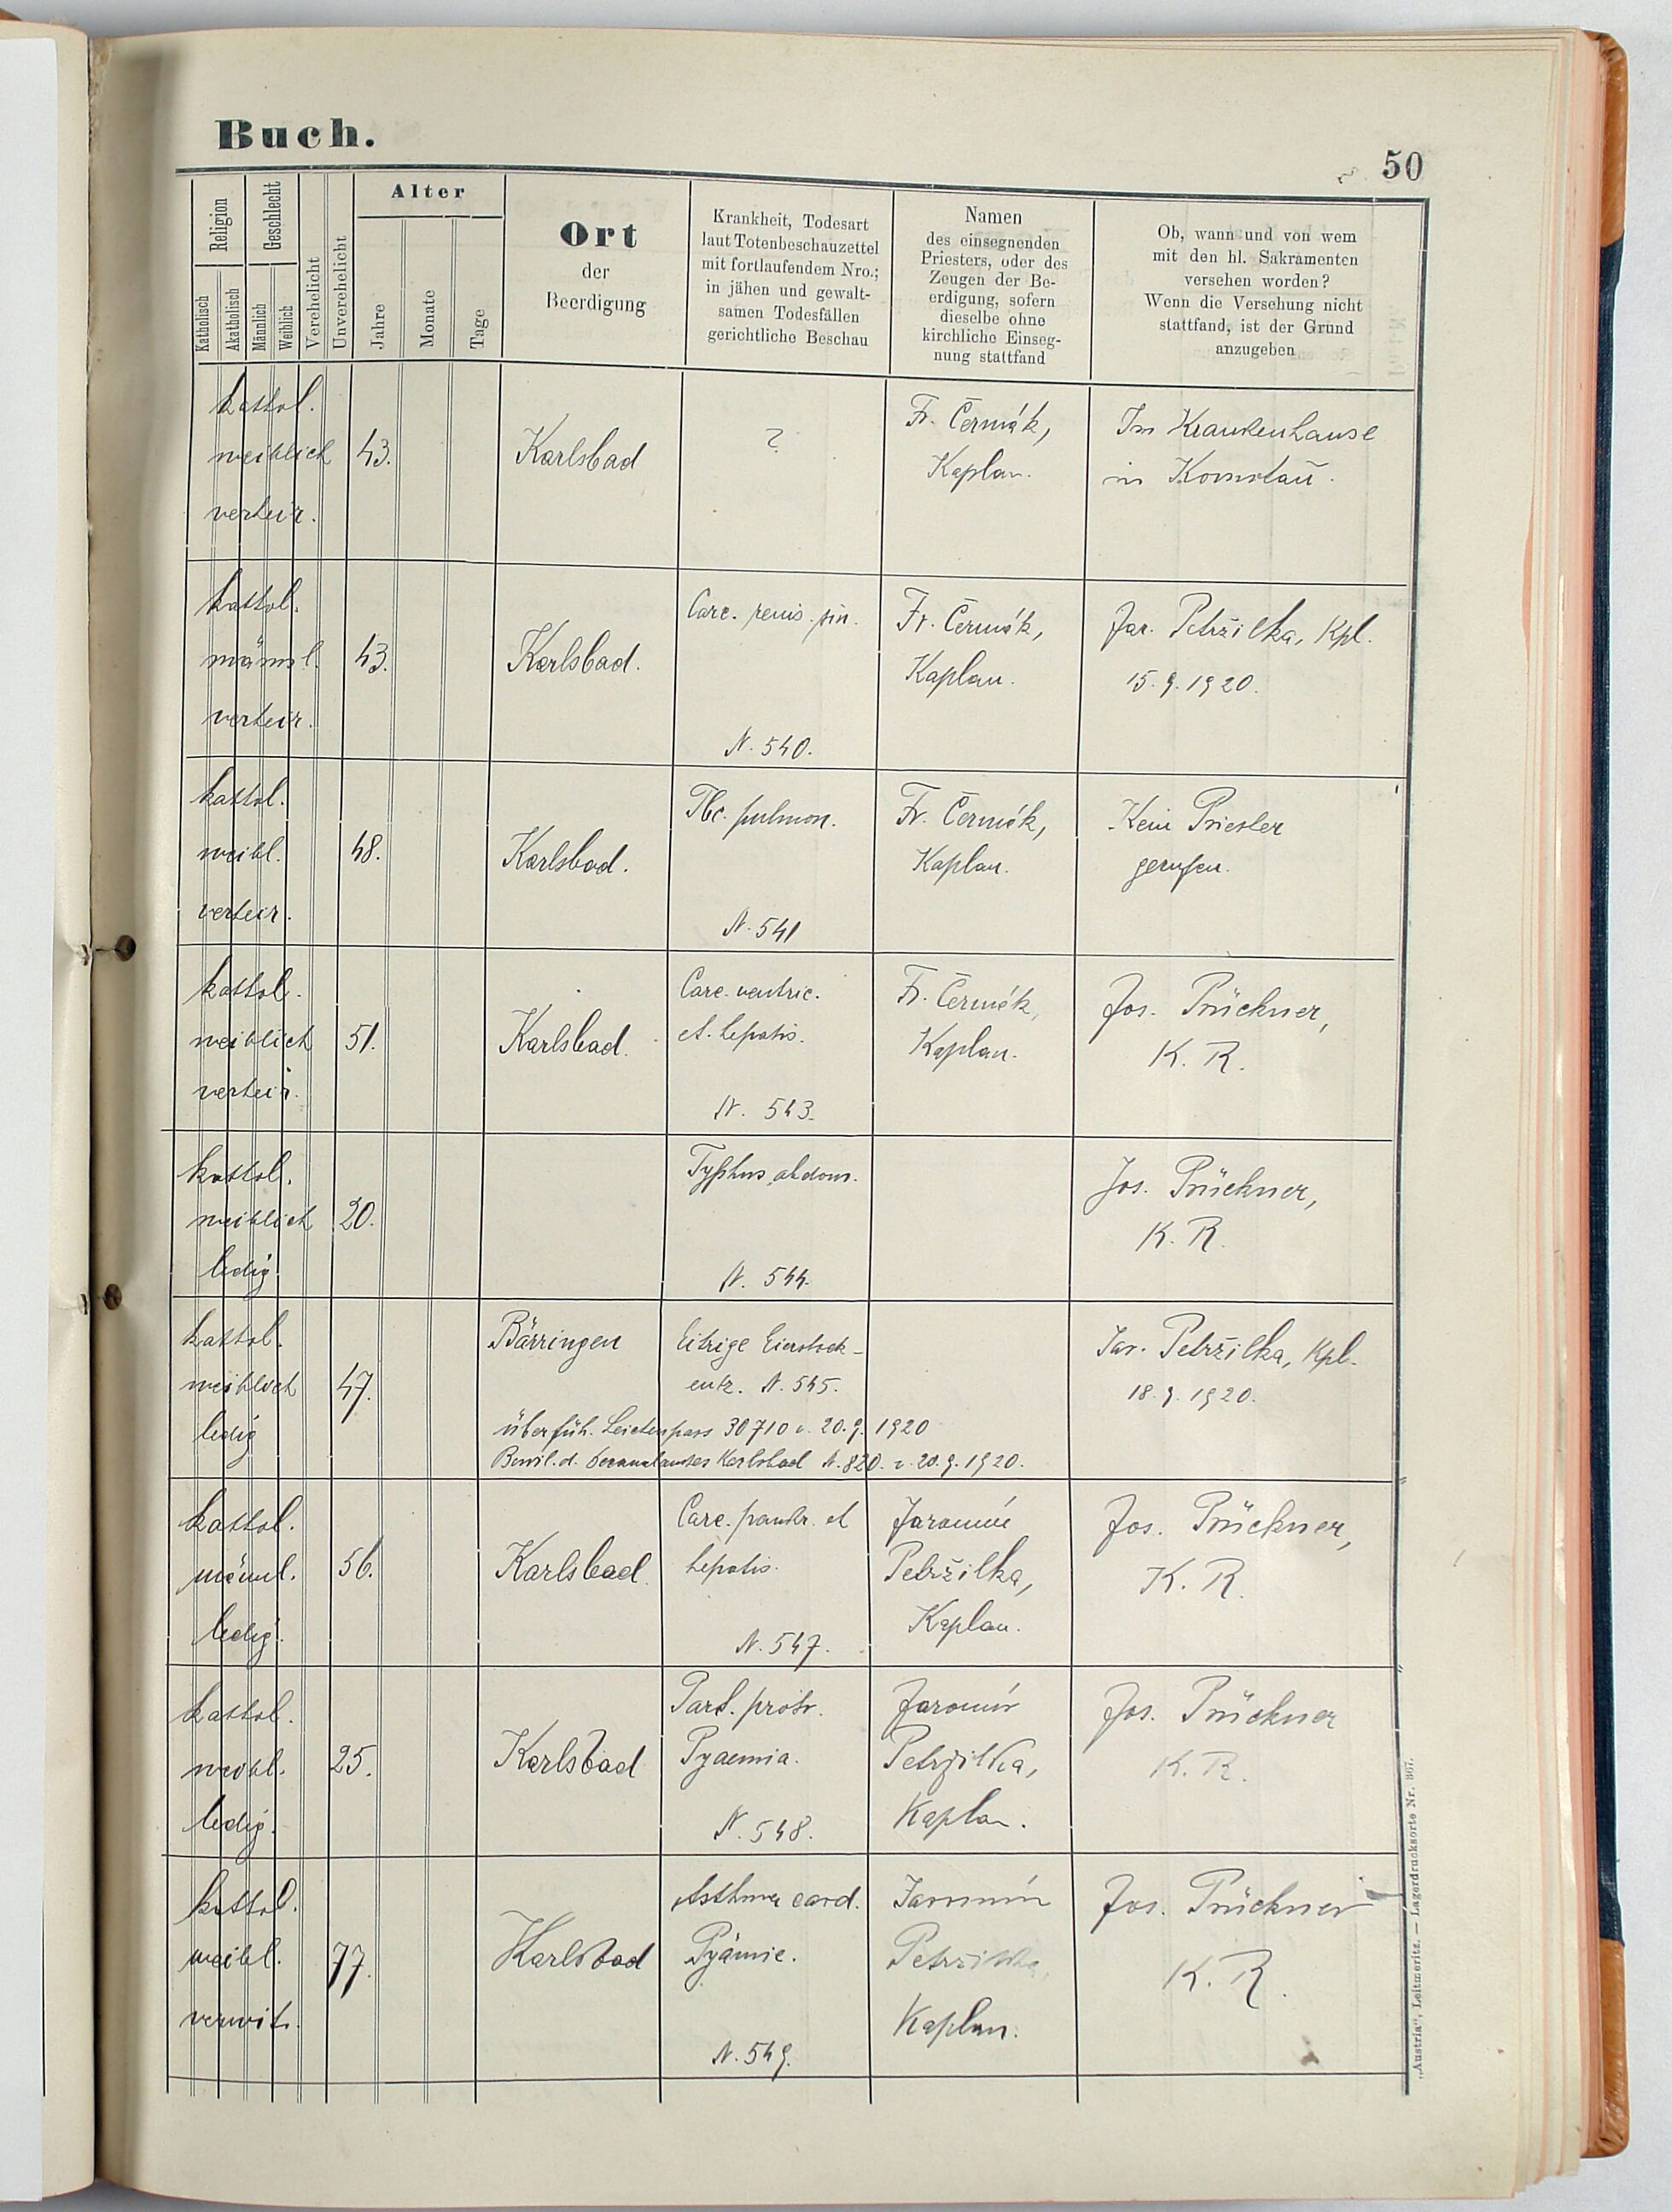 Buch.
50
Religion
Geschlecht
Katholisch
Akatholisch
Männlich
Weiblich
Verehelicht
Unverehelicht
Alter
Jahre
Monate
Tage
Ort
der
Beerdigung
Krankheit, Todesart
laut Totenbeschauzettel
mit fortlaufendem Nro.;
in jähen und gewalt-
samen Todesfällen
gerichtliche Beschau
Namen
des einsegnenden
Priesters, oder des
Zeugen der Be-
erdigung, sofern
dieselbe ohne
kirchliche Einseg-
nung stattfand
Ob, wann und von wem
mit den hl. Sakramenten
versehen worden?
Wenn die Versehung nicht
stattfand, ist der Grund
anzugeben
kathol.
weiblich
verheir.
43.
Karlsbad
?
Fr. Čermák,
Kaplan.
Im Krankenhause
in Komotau.
kathol.
männl.
verheir.
43.
Karlsbad.
Carc. renis. sin.
N. 540.
Fr. Čermák,
Kaplan.
Jar. Petržilka, Kpl.
15.9.1920.
kathol.
weibl.
verheir.
48.
Karlsbad.
Tbc. pulmon.
N. 541
Fr. Čermák,
Kaplan.
Kein Priester
gerufen.
kathol.
weiblich
verheir.
51.
Karlsbad.
Carc. ventric.
et. hepatis.
N. 543.
Fr. Čermák,
Kaplan.
Jos. Prückner,
K. R.
kathol.
weiblich
ledig
20.
Typhus abdom.
N. 544.
Jos. Prückner,
K. R.
kathol.
weiblich
ledig
47.
Bärringen
Eitrige Eierstock-
entz. N. 545.
überfüh. Leichenpass 30710 v. 20.9.1920
Bewil. d. Karlsbad N. 820. v. 20.9.1920.
Jar. Petržilka, Kpl.
18.9.1920.
kathol.
männl.
ledig.
56.
Karlsbad.
Carc. pankr. et
hepatis.
N. 547.
Jaromír
Petržilka,
Kaplan.
Jos. Prückner,
K. R.
kathol.
weibl.
ledig.
25.
Karlsbad
Part.
Pyaemia.
N. 548.
Jaromír
Petržilka,
Kaplan.
Jos. Prückner
K. R.
kathol.
weibl.
verwit.
77.
Karlsbad
Asthma card.
Pyämie.
N. 549.
Jaromír
Petržilka,
Kaplan.
Jos. Prückner
K. R.
„Austria“, Leitmeritz. — Lagerdrucksorte Nr.